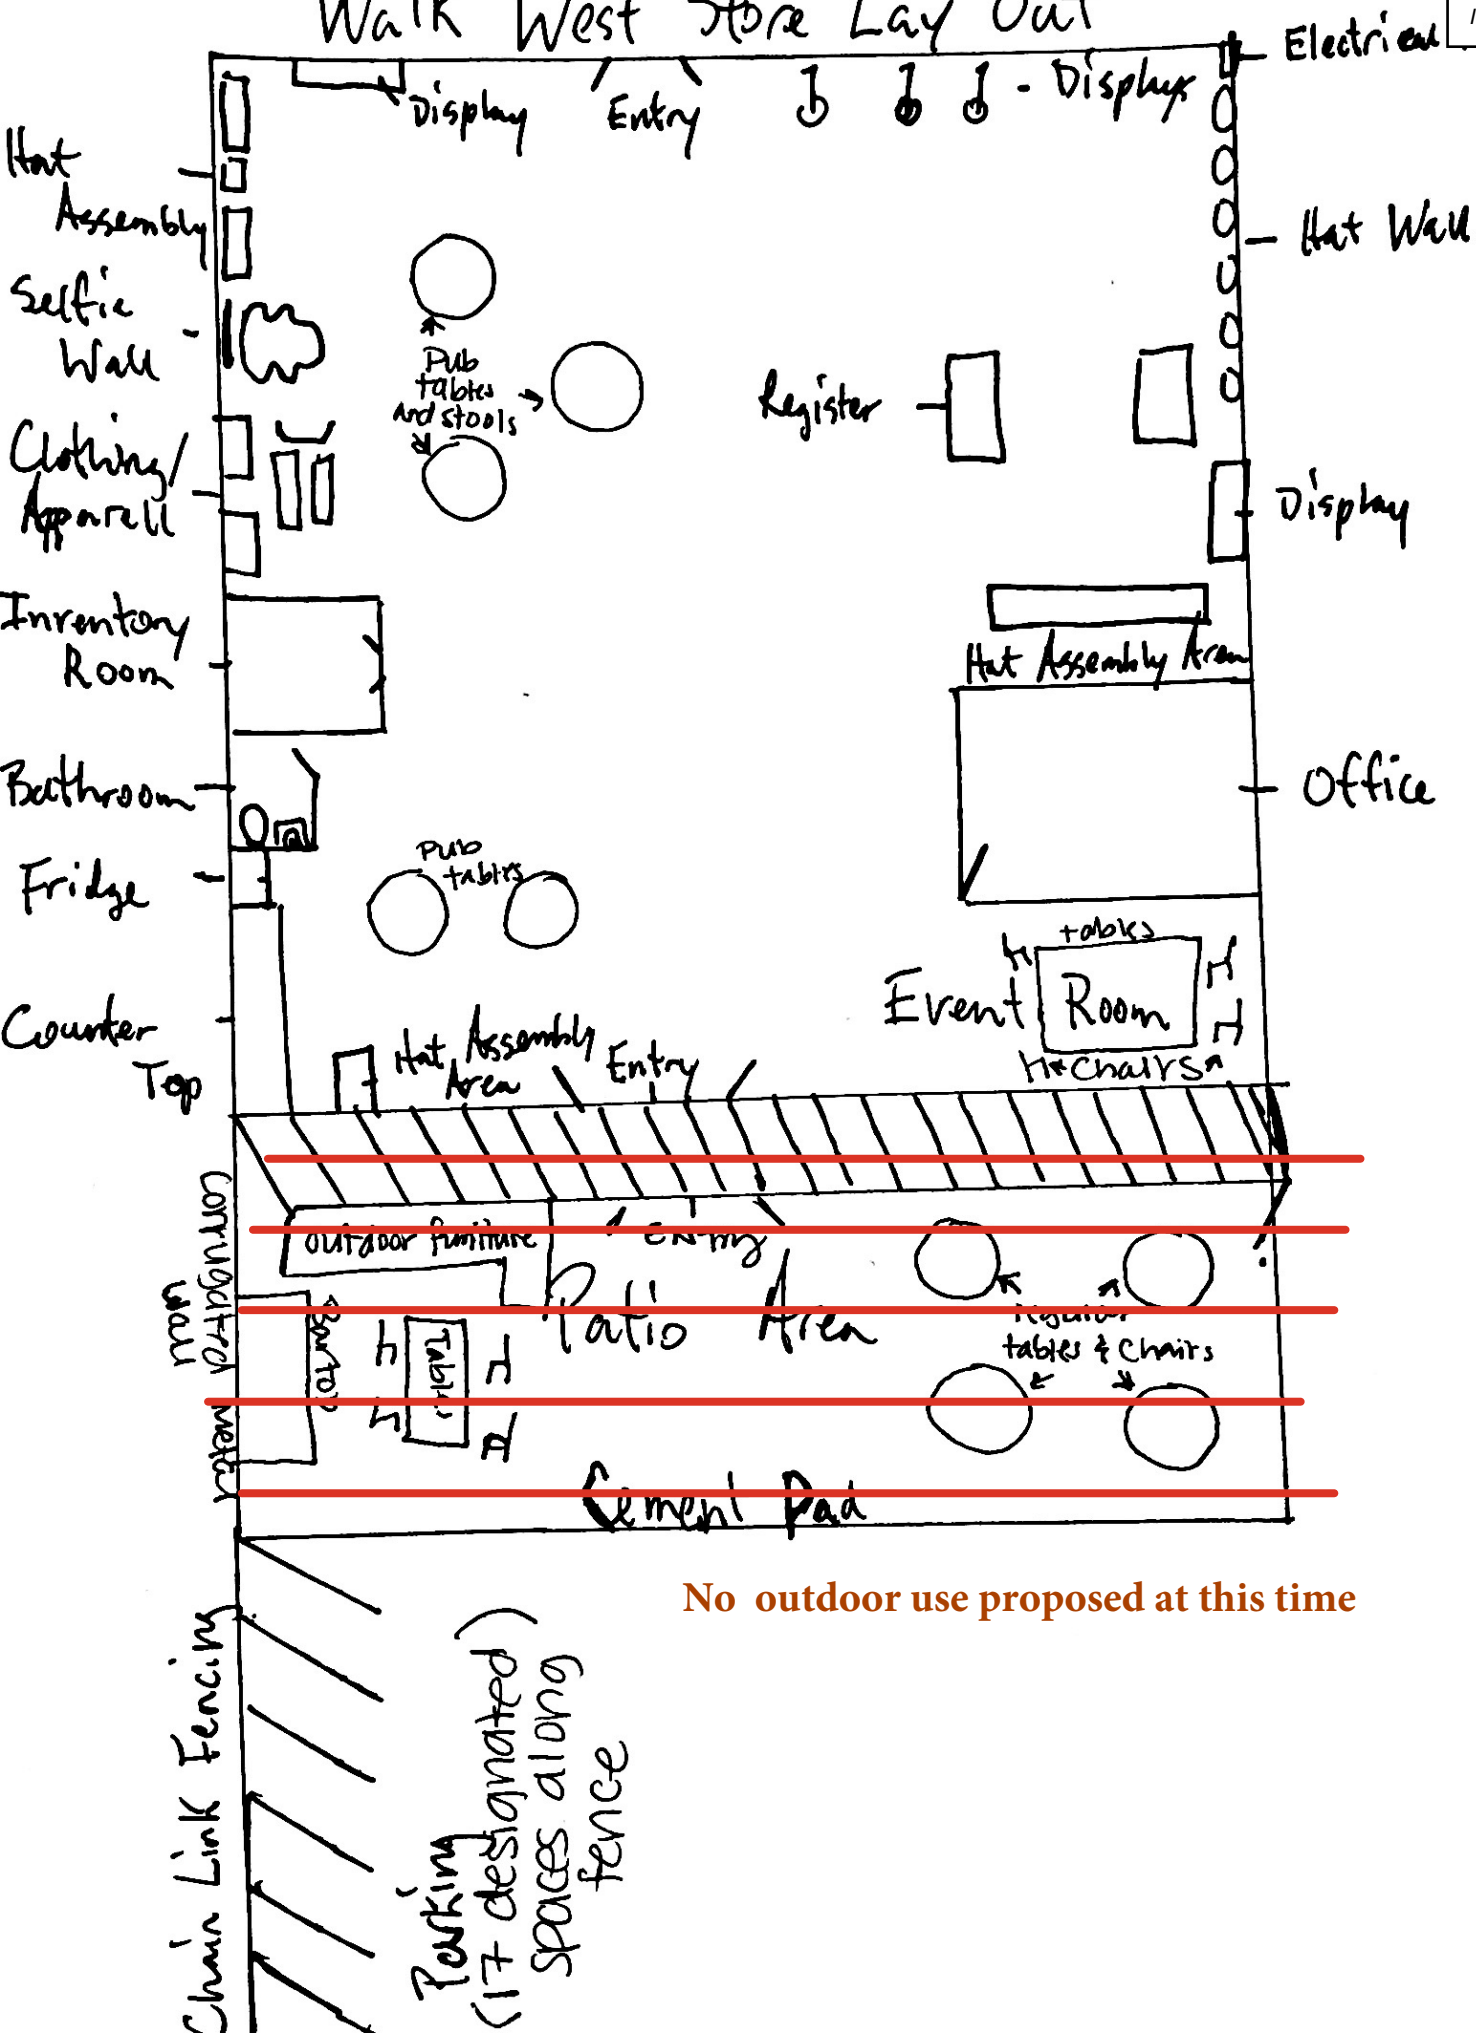 Walk West Store Lay Out
Electrical
Display
Entry
- Displays
Hat
Assembly
Hat Wall
Selfie
Wall
Pub
tables
and stools
Register
Clothing/
Apparell
Display
Inventory
Room
Hat Assembly Area
Bathroom
Office
Pub
tables
Fridge
tables
Event Room
Counter
Top
Hat Assembly
Area
Entry
Chairs
Corrugated metal
wall
outdoor furniture
Entry
Patio Area
Bar top
Table
Regular
tables & Chairs
Cement Pad
No outdoor use proposed at this time
Chain Link Fencing
Parking
(17 designated)
spaces along
fence